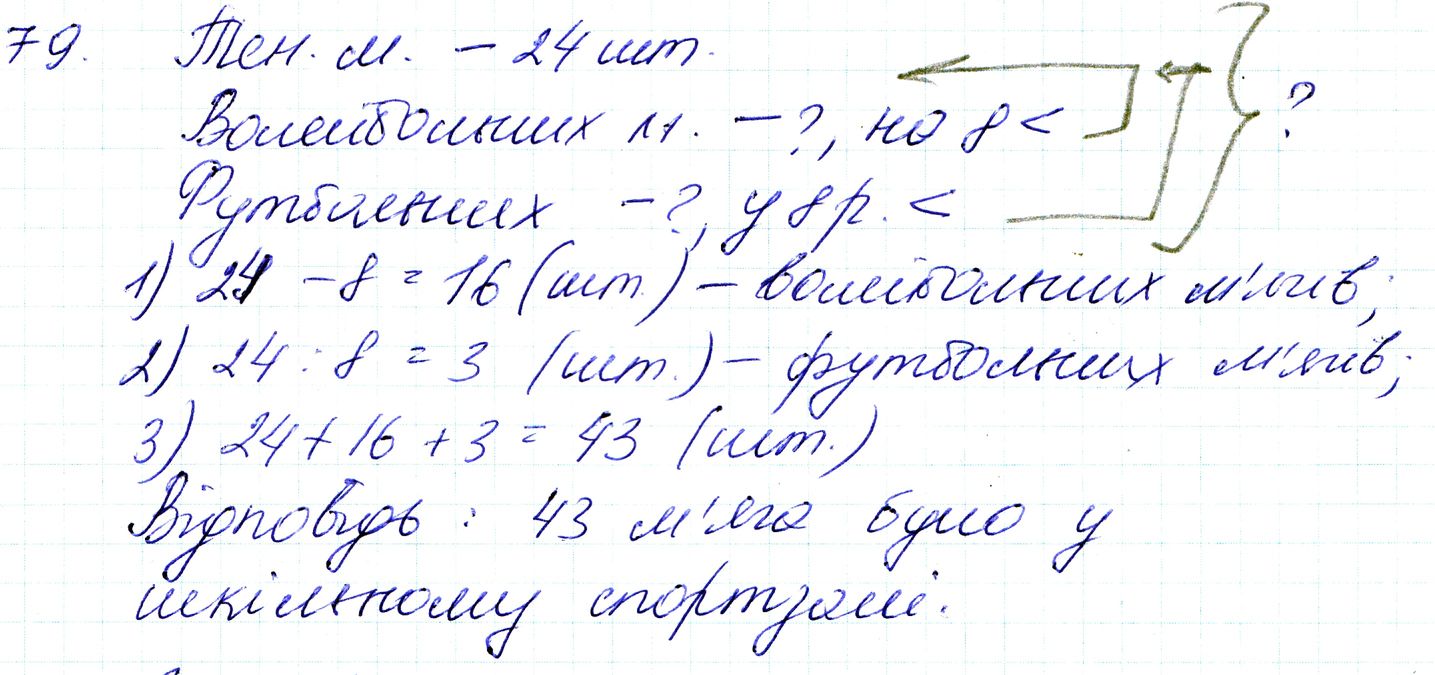 79. Тен. м. – 24 шт.
Волейбольних м. – ?, на 8 < ?
Футбольних – ?, у 8 р. <
1) 24 – 8 = 16 (шт.) – волейбольних м'ячів;
2) 24 : 8 = 3 (шт.) – футбольних м'ячів;
3) 24 + 16 + 3 = 43 (шт.)
Відповідь : 43 м'яча було у
шкільному спортзалі.